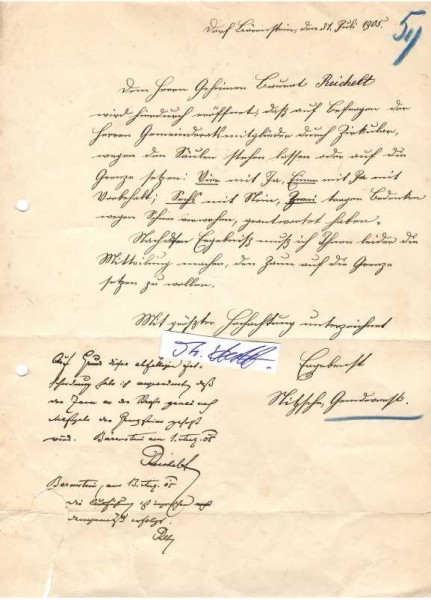 Dorf Bärenstein, den 31. Juli 1905.
54
Dem Herrn Geheimen Baurat Reichelt
wird hierdurch eröffnet, daß auf Befragen der
Herren Gemeinderatsmitglieder durch Zirkular,
wegen den Säulen stehen lassen oder auf die
Grenze setzen: Vier mit Ja, Einer mit Ja mit
Vorbehalt; Sechs mit Nein, Zwei tragen Bedenken
wegen geantwortet haben.
Nach diesem Ergebniß muß ich Ihnen leider die
Mitteilung machen, den Zaun auf die Grenze
setzen zu wollen.
Mit größter Hochachtung unterzeichnet
Ergebenst
Nitzsche, Gemdevorst.
Auf Grund dieser
habe ich angeordnet, daß
der Zaun an der
der Grenzsteine gesetzt
wird. Bärenstein am 1. Aug. 05
Reichelt
Bärenstein, am 13. Aug. 05
die ist
erfolgt.